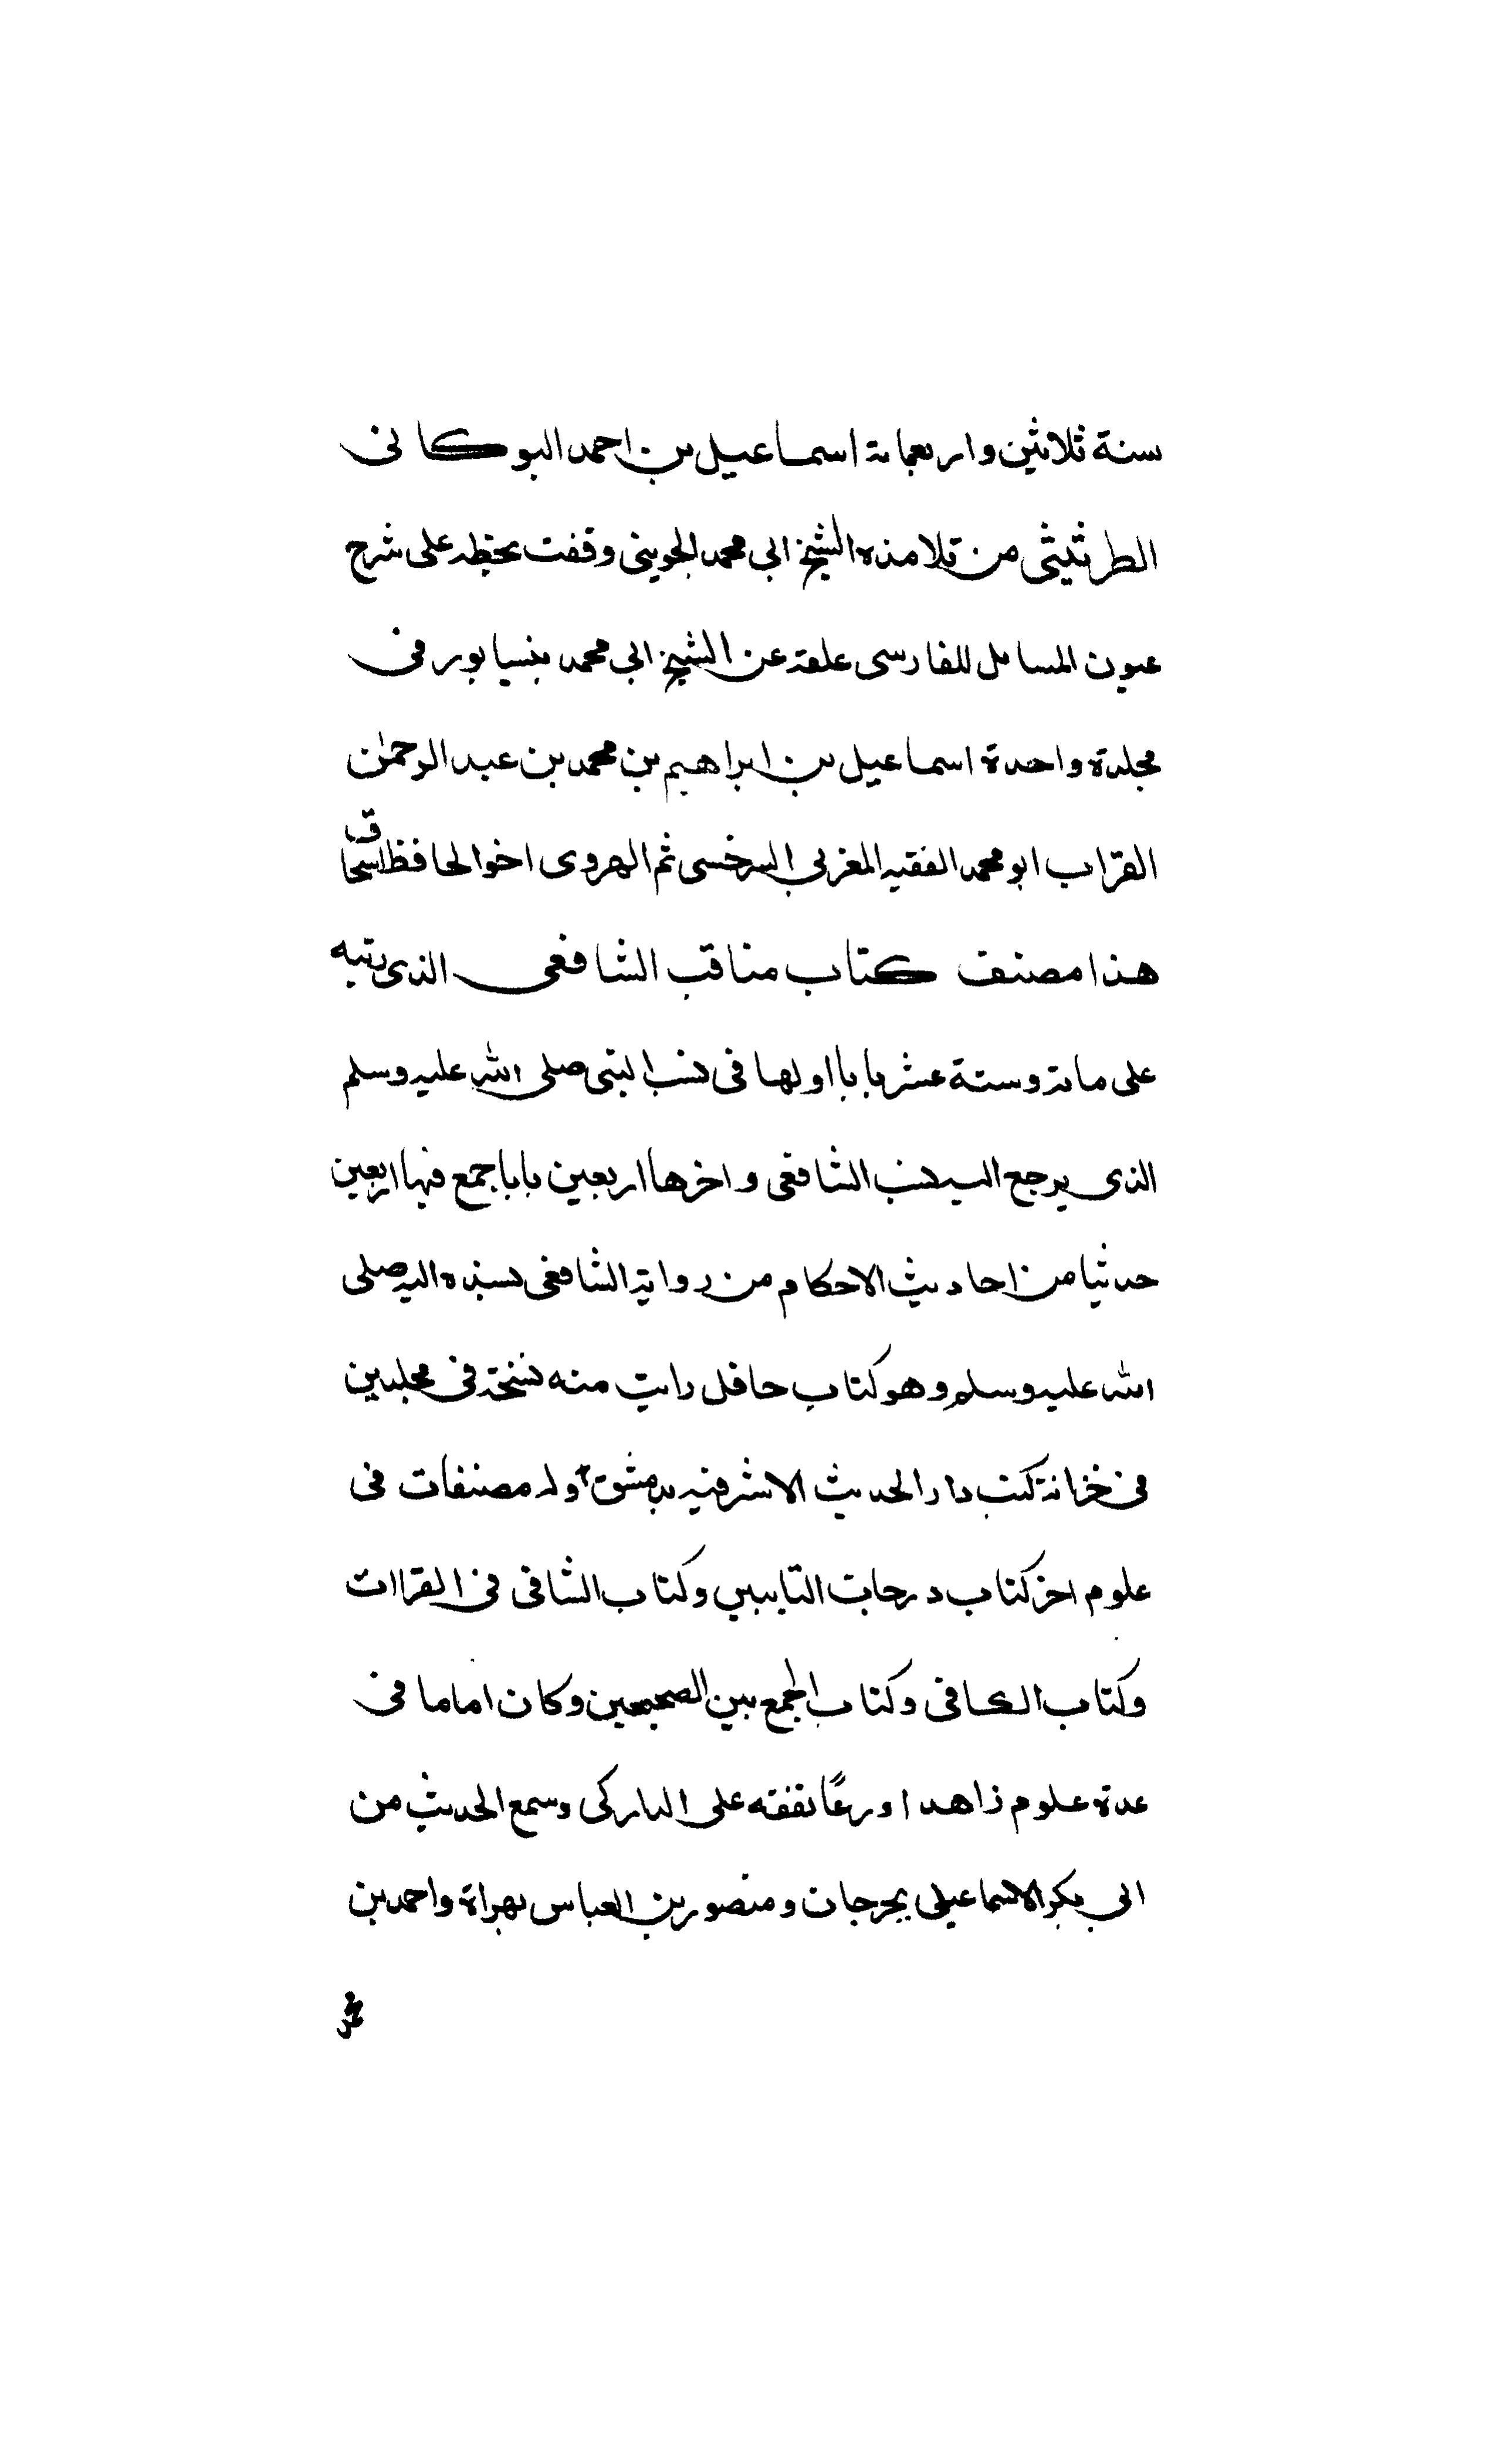 سنة ثلاثين واربعمائة اسماعيل بن احمد البوكانى
الطرثيثى من تلامذه الشيخ ابى محمد الجوينى وقفت بخطه على شرح
عيون المسائل للفارسى علقه عن الشيخ ابى محمد بنيسابور فى
مجلدة واحدة اسماعيل بن ابراهيم بن محمد بن عبد الرحمن
القرّاب ابو محمد الفقيه المغربى السرخسى ثم الهروى اخو الحافظ اسحاق
هذا مصنف كتاب مناقب الشافعى الذى رتبه
على مائة وستة عشر بابا اولها فى نسب النبى صلى الله عليه وسلم
الذى يرجع اليه نسب الشافعى واخرها اربعين بابا جمع فيها اربعين
حديثا من احاديث الاحكام من رواية الشافعى بسنده اليه صلى
الله عليه وسلم وهو كتاب حافل رايت منه نسخة فى مجلدين
فى خزانة كتب دار الحديث الاشرفيه بدمشق وله مصنفات فى
علوم اخر كتاب درجات التايبين وكتاب الشافى فى القراات
وكتاب الكافى وكتاب الجمع بين الصحيحين وكان اماما فى
عدة علوم زاهدا ورعًا تفقه على الداركى وسمع الحديث من
ابى بكر الاسماعيلى بجرجان ومنصور بن العباس بهراة واحمد بن
محمد